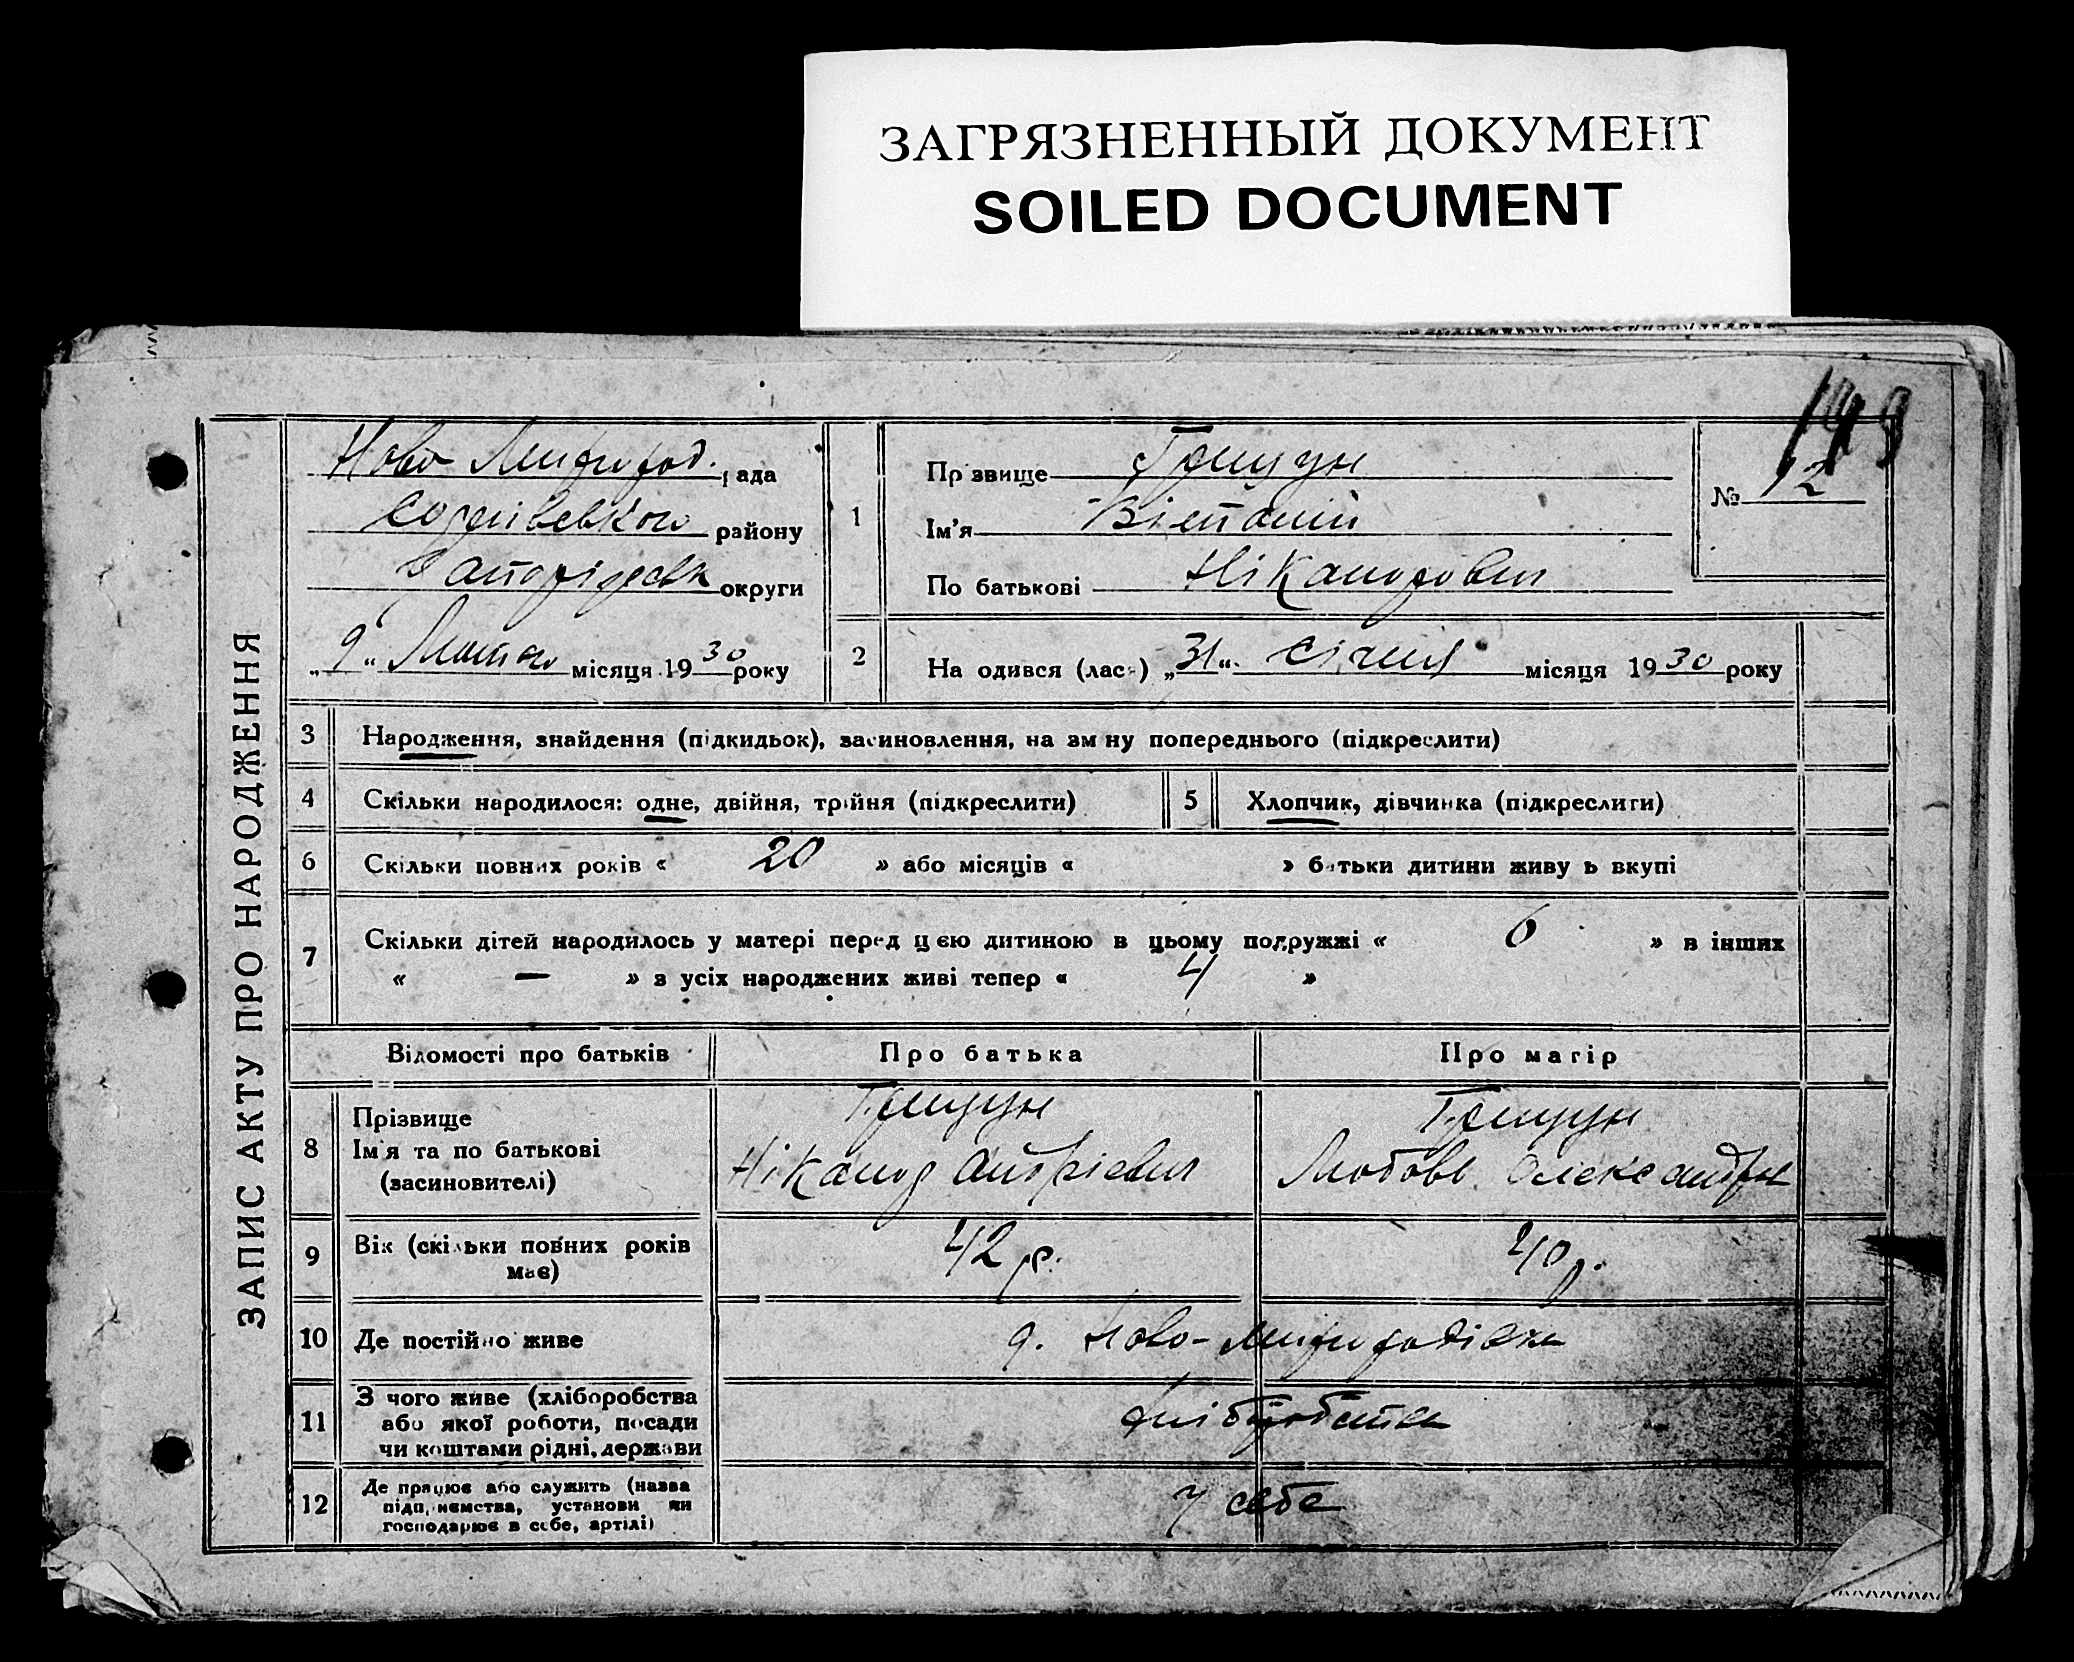 ЗАГРЯЗНЕННЫЙ ДОКУМЕНТ
SOILED DOCUMENT
149
ЗАПИС АКТУ ПРО НАРОДЖЕННЯ
Ново Миргород. рада
Софіївского району
Запоріжськ округи
„9“ Лютого місяця 1930 року
1
Прізвище Грицун
Ім'я Віталій
По батькові Ніканорович
№ 12
2 На одився (лася) „31“ січня місяця 1930 року
3 Народження, знайдення (підкидьок), засиновлення, на зміну попереднього (підкреслити)
4 Скільки народилося: одне, двійня, трійня (підкреслити)
5 Хлопчик, дівчинка (підкреслити)
6 Скільки повних років « 20 » або місяців « » батьки дитини живуть вкупі
7 Скільки дітей народилось у матері перед цією дитиною в цьому подружжі « 6 » в інших
« — » з усіх народжених живі тепер « 4 »
Відомості про батьків Про батька Про матір
8 Прізвище
Ім'я та по батькові
(засиновителі)
Грицун
Ніканор Андрієвич
Грицун
Любовь Олександрів
9 Вік (скільки повних років
має)
42 р.
40 р.
10 Де постійно живе
с. Ново-Миргородівка
11 З чого живе (хліборобства
або якої роботи, посади
чи коштами рідні, держави
хліборобство
12 Де працює або служить (назва
підприємства, установи чи
господарює в себе, артілі)
у себе